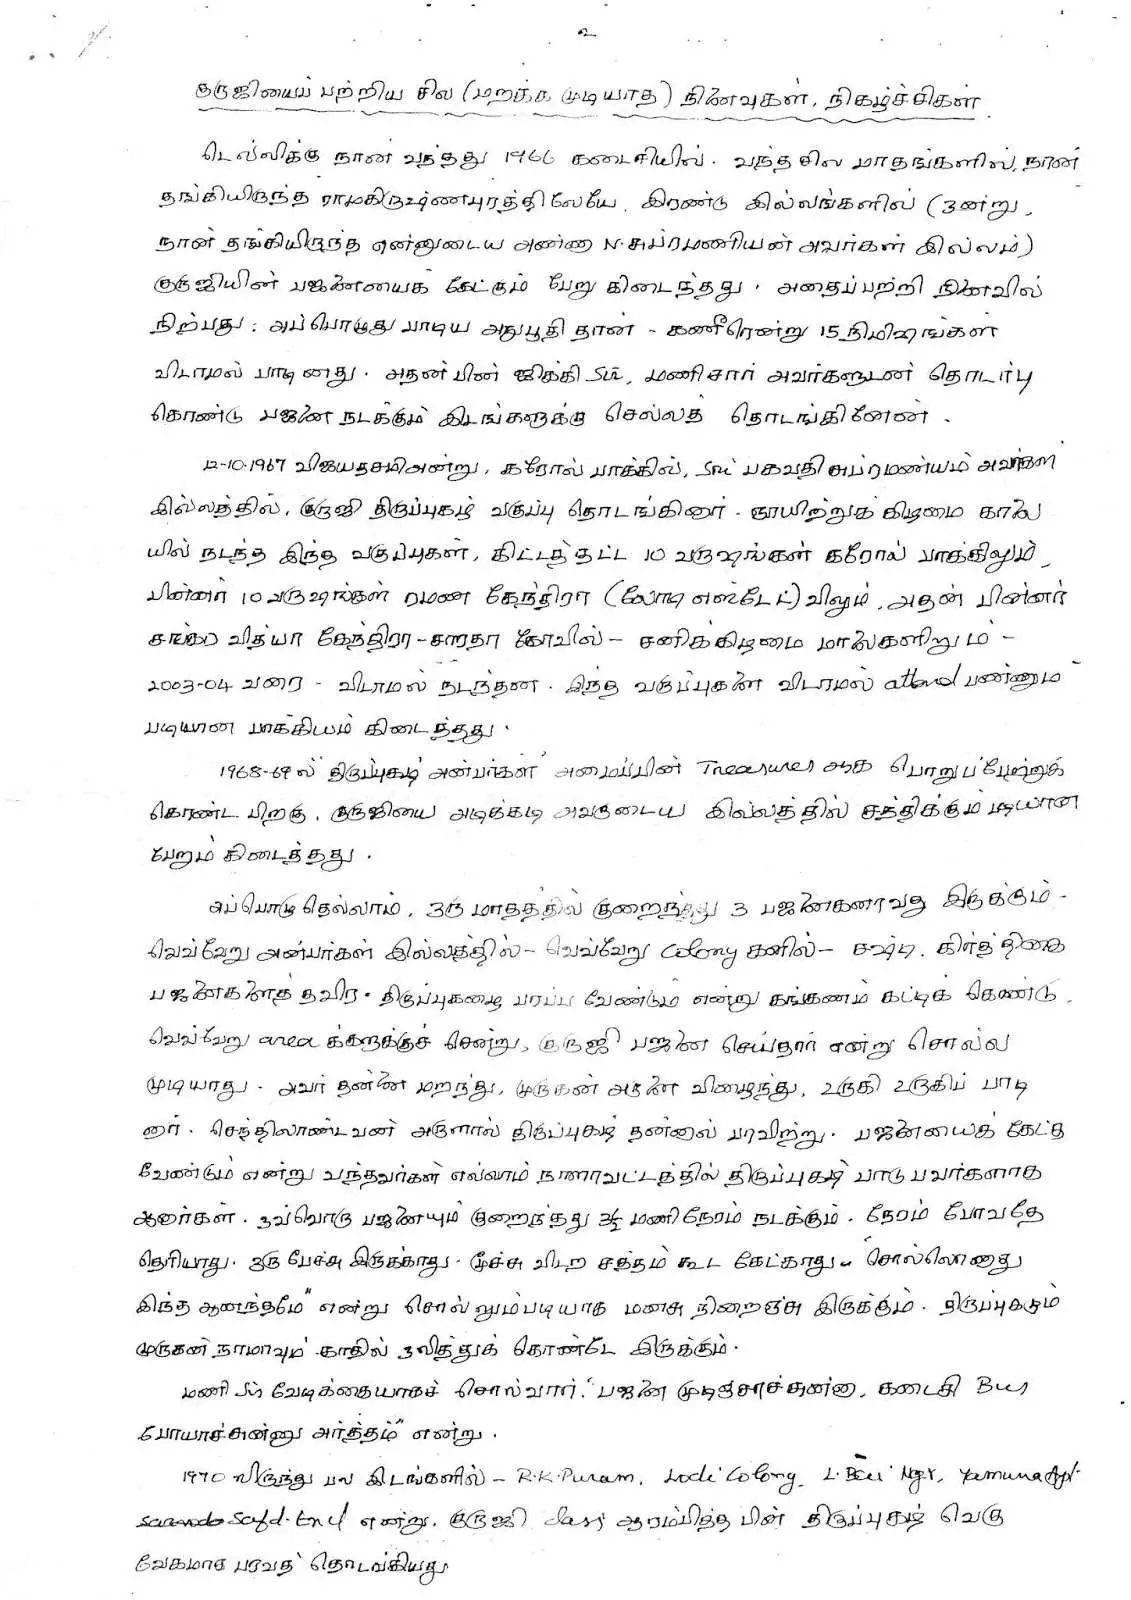 ௨
குருஜியைப் பற்றிய சில (மறக்க முடியாத) நினைவுகள், நிகழ்ச்சிகள்
டெல்லிக்கு நான் வந்தது 1966 கடைசியில். வந்த சில மாதங்களில், நான்
தங்கியிருந்த ராமகிருஷ்ணபுரத்திலேயே, இரண்டு இல்லங்களில் (ஒன்று,
நான் தங்கியிருந்த என்னுடைய அண்ணா N. சுப்ரமணியன் அவர்கள் இல்லம்)
குருஜியின் பஜனையைக் கேட்கும் பேறு கிடைந்தது. அதைப்பற்றி நினைவில்
நிற்பது: அப்பொழுது பாடிய அநுபூதி தான் - கணீரென்று 15 நிமிஷங்கள்
விடாமல் பாடினது. அதன் பின் ஜிக்கி Sir, மணி சார் அவர்களுடன் தொடர்பு
கொண்டு பஜனை நடக்கும் இடங்களுக்கு செல்லத் தொடங்கினேன்.
12-10-1967 விஜயதசமி அன்று, கரோல் பாக்கில், Sri பகவதி சுப்ரமண்யம் அவர்கள்
இல்லத்தில், குருஜி திருப்புகழ் வகுப்பு தொடங்கினார். ஞாயிற்றுக் கிழமை காலை
யில் நடந்த இந்த வகுப்புகள், கிட்டத்தட்ட 10 வருஷங்கள் கரோல் பாக்கிலும்,
பின்னர் 10 வருஷங்கள் ரமண கேந்திரா (லோடி எஸ்டேட்) விலும், அதன் பின்னர்
சங்கர வித்யா கேந்திரா - சாரதா கோவில் - சனிக்கிழமை மாலைகளிலும் -
2003-04 வரை - விடாமல் நடந்தன. இந்த வகுப்புகளை விடாமல் attend பண்ணும்
படியான பாக்கியம் கிடைத்தது.
1968-69 ல் திருப்புகழ் அன்பர்கள் அமைப்பின் Treasurer ஆக பொறுப்பேற்றுக்
கொண்ட பிறகு, குருஜியை அடிக்கடி அவருடைய இல்லத்தில் சந்திக்கும்படியான
பேறும் கிடைத்தது.
அப்பொழுதெல்லாம், ஒரு மாதத்தில் குறைந்தது 3 பஜனைகளாவது இருக்கும் -
வெவ்வேறு அன்பர்கள் இல்லத்தில் - வெவ்வேறு Colony களில் - சஷ்டி, கிர்த்திகை
பஜனைகளைத் தவிர. திருப்புகழை பரப்ப வேண்டும் என்று கங்கணம் கட்டிக் கொண்டு,
வெவ்வேறு area க்களுக்குச் சென்று, குருஜி பஜனை செய்தார் என்று சொல்ல
முடியாது. அவர் தன்னை மறந்து, முருகன் அருளை விழைந்து, உருகி உருகிப் பாடி
னார். செந்திலாண்டவன் அருளால் திருப்புகழ் தன்னால் பரவிற்று. பஜனையைக் கேட்க
வேண்டும் என்று வந்தவர்கள் எல்லாம் நாளாவட்டத்தில் திருப்புகழ் பாடுபவர்களாக
ஆனார்கள். ஒவ்வொரு பஜனையும் குறைந்தது 3½ மணி நேரம் நடக்கும். நேரம் போவதே
தெரியாது. ஒரு பேச்சு இருக்காது. மூச்சு விடற சத்தம் கூட கேட்காது. "சொல்லொணாது
இந்த ஆனந்தமே" என்று சொல்லும்படியாக மனசு நிறைஞ்சு இருக்கும். திருப்புகழும்
முருகன் நாமாவும் காதில் ஒலித்துக் கொண்டே இருக்கும்.
மணி Sir வேடிக்கையாகச் சொல்வார். "பஜனை முடிஞ்சாச்சுன்னா, கடைசி Bus
போயாச்சுன்னு அர்த்தம்" என்று.
1970 லிருந்து பல இடங்களில் - R.K. Puram, Lodi Colony, L. Bai Ngr, Yamuna Apt.
Safd. Encl என்று, குருஜி class ஆரம்பித்த பின் திருப்புகழ் வெகு
வேகமாக பரவத் தொடங்கியது